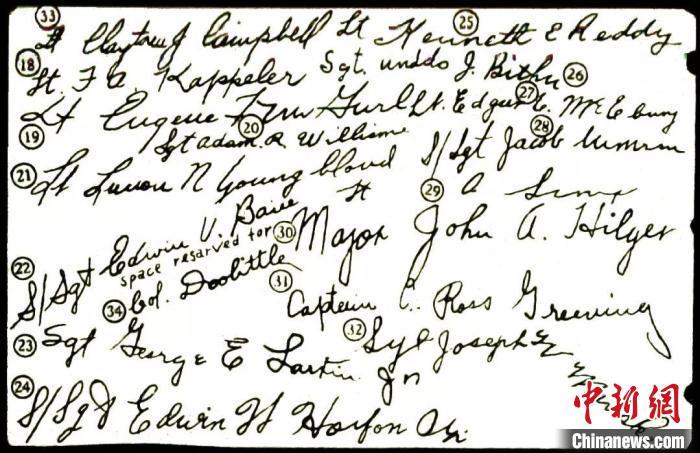 33 Lt Claytow J Campbell Lt 25 Kenneth E Reddy
18 Lt. F A. Kappeler Sgt. J. Bither 26
Lt Eugene F McGurl Lt. Edgar E. McElroy 27
19 Sgt Adam. R. Williams 20 S/Sgt Jacob 28
21 Lt N Youngblood St 29 A
22 S/Sgt Edwin V. Bain 30 Major John A. Hilger
space resarved for
34 Col. Doolittle 31
Captain C. Ross Greening
23 Sgt George E Larkin Jr 32 Sgt Joseph
24 S/Sgt Edwin W Horton Jr.
中新网
Chinanews.com